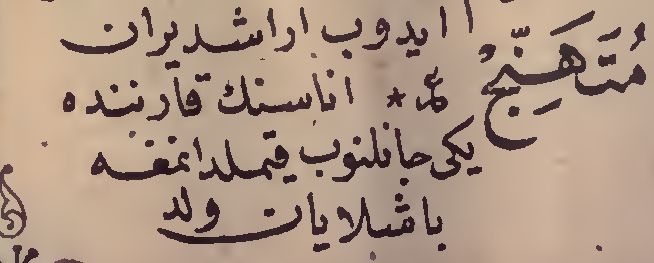 ا ايدوب اراشديران
مُتَهَنِّجْ * اناسنك قارننده
يكى جانلنوب قيملدانمغه
باشلايان ولد